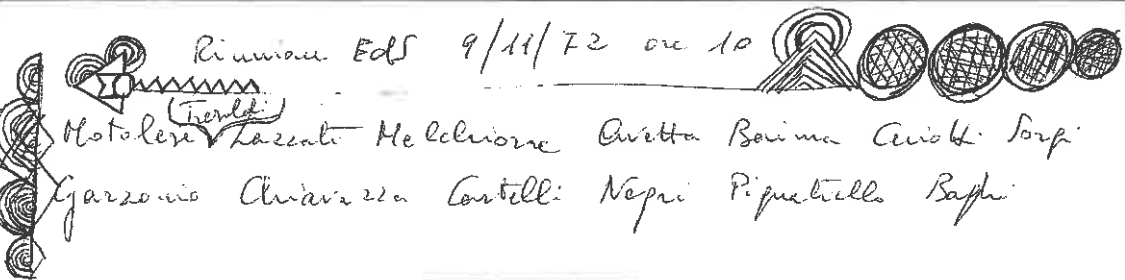 Riunione EdS 9/11/72 ore 10
(Tresoldi)
Motolese Lazzati Melchiorre Avetta Borima Cariotti Sorgi
Garzonio Chiavazza Castelli Negri Pignatiello Baffi